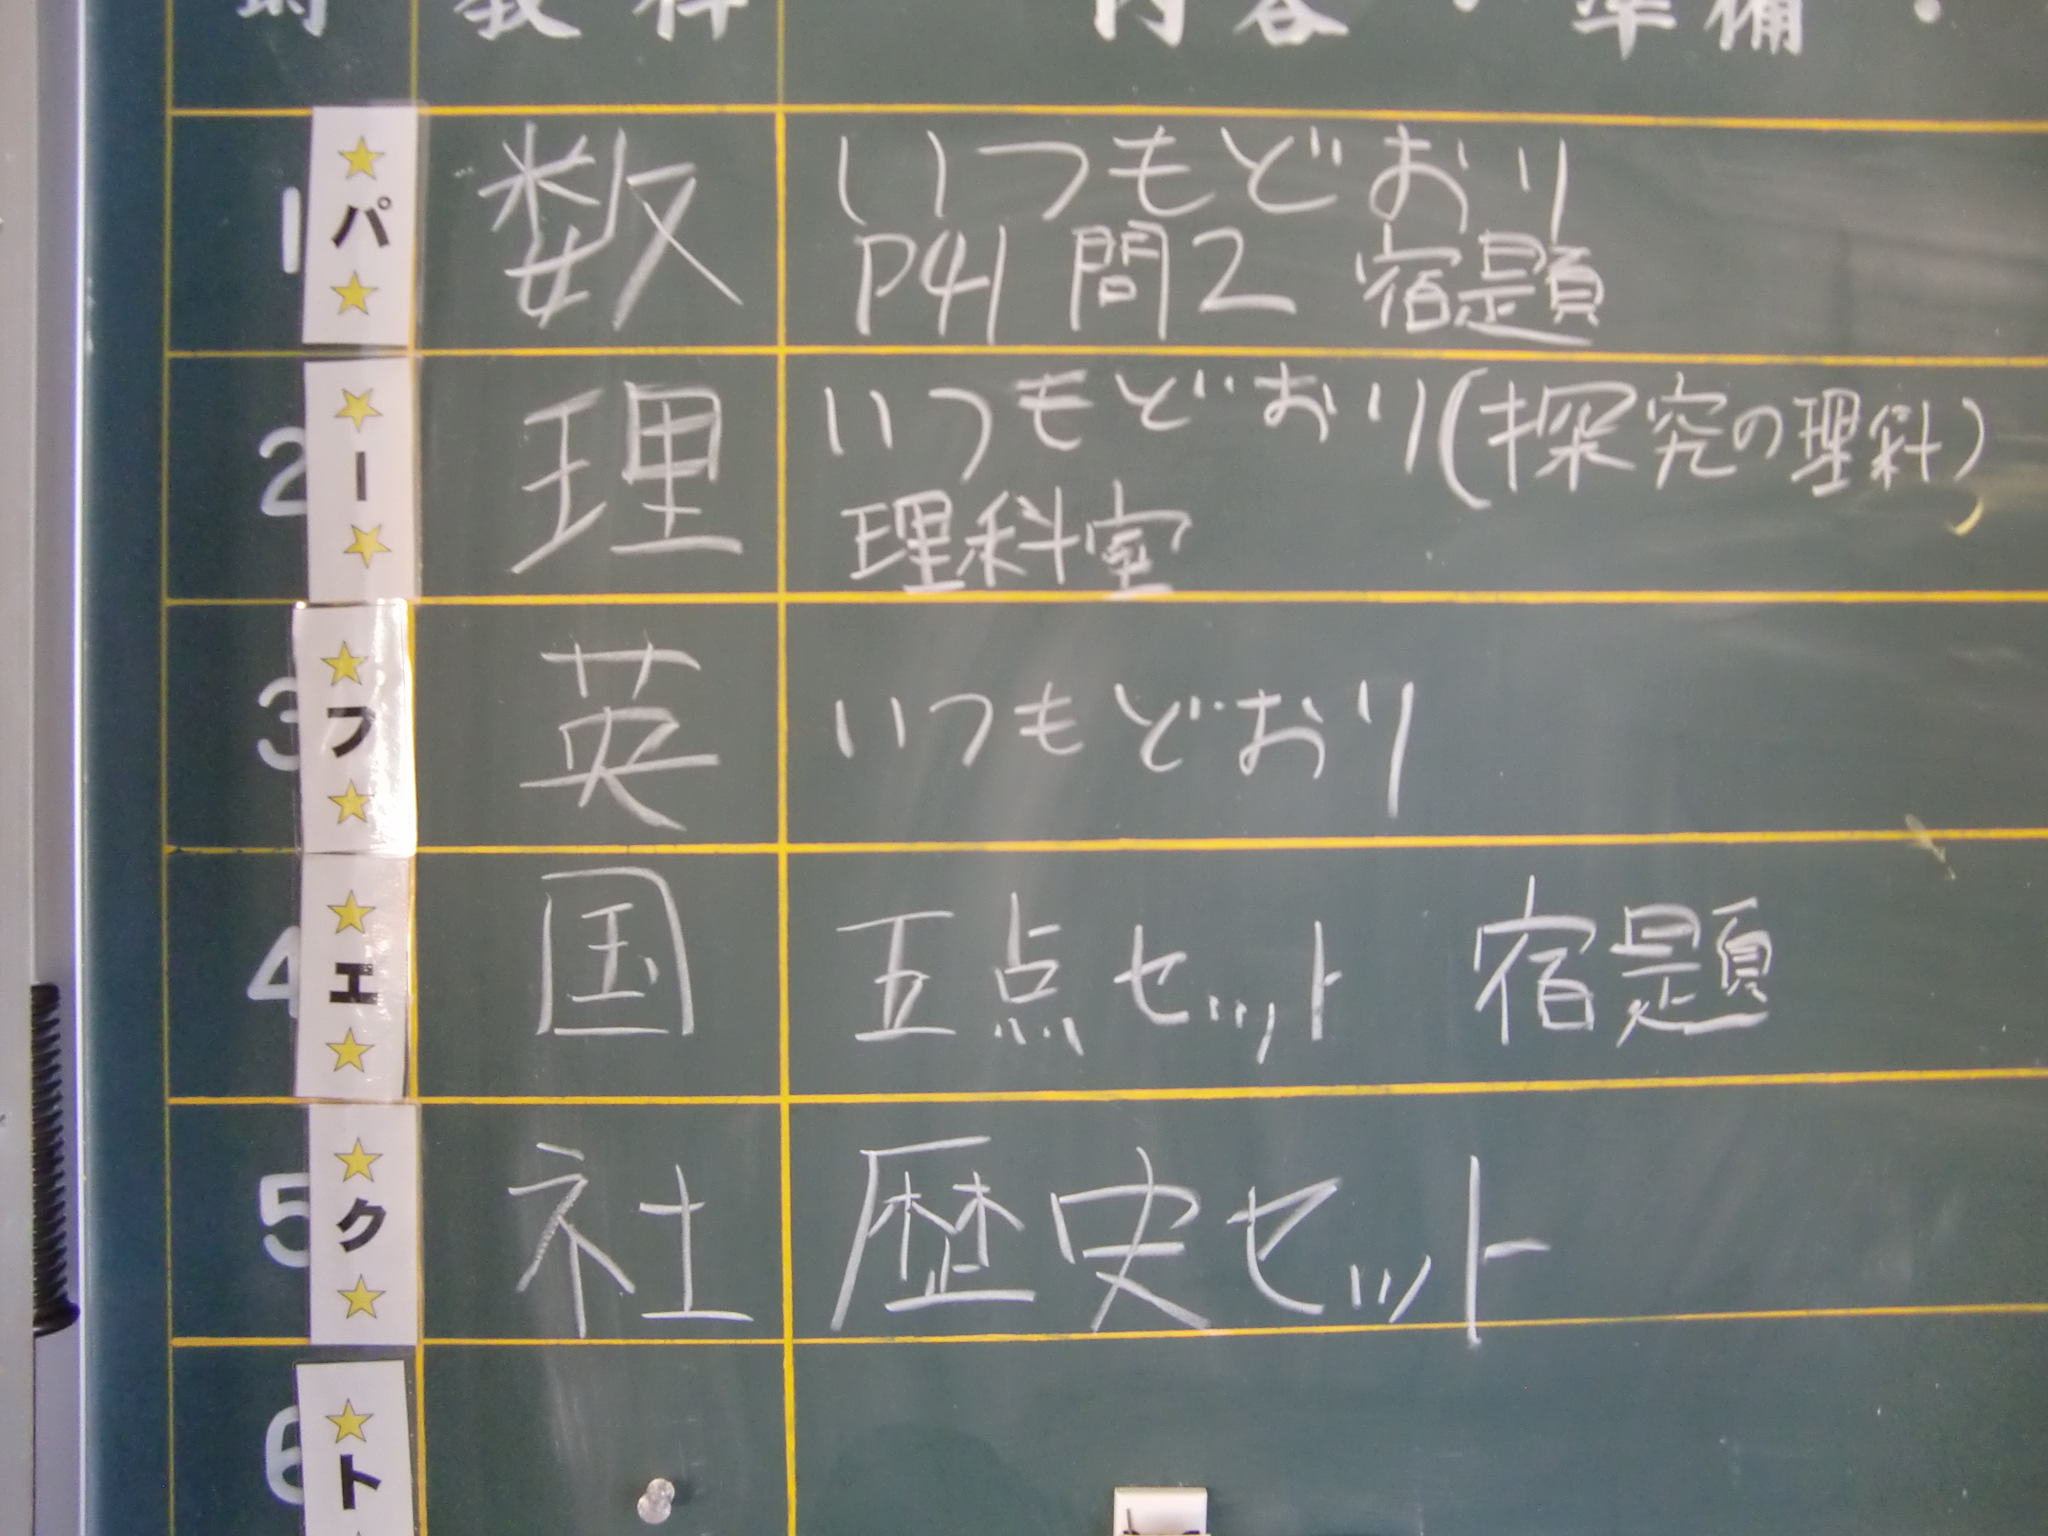 時 教科 内容・準備・
1 パ 数 いつもどおり
P41 問2 宿題
2 ー 理 いつもどおり(探究の理科)
理科室
3 フ 英 いつもどおり
4 エ 国 五点セット 宿題
5 ク 社 歴史セット
6 ト